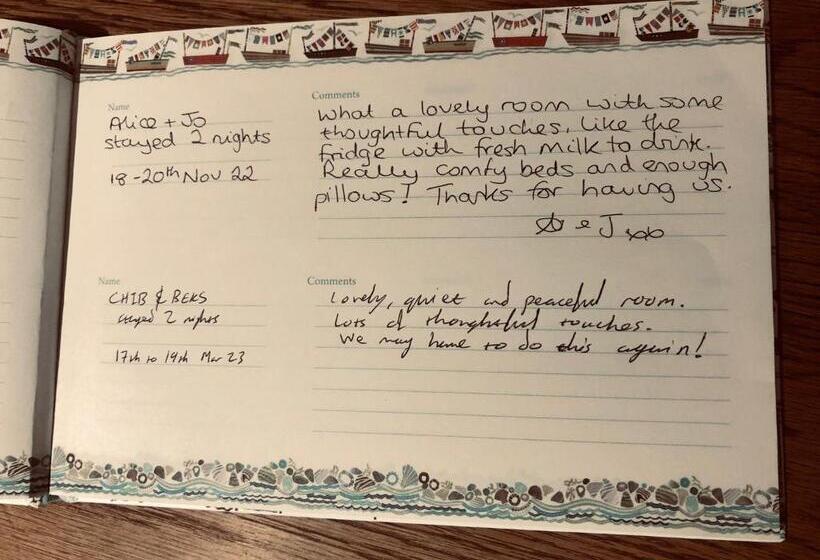 Name
Alice + Jo
stayed 2 nights
18-20th Nov 22
Comments
What a lovely room with some
thoughtful touches, like the
fridge with fresh milk to drink.
Really comfy beds and enough
pillows! Thanks for having us.
A & J xoxo
Name
CHIB & BEKS
stayed 2 nights
17th to 19th Mar 23
Comments
Lovely, quiet and peaceful room.
Lots of thoughtful touches.
We may have to do this again!